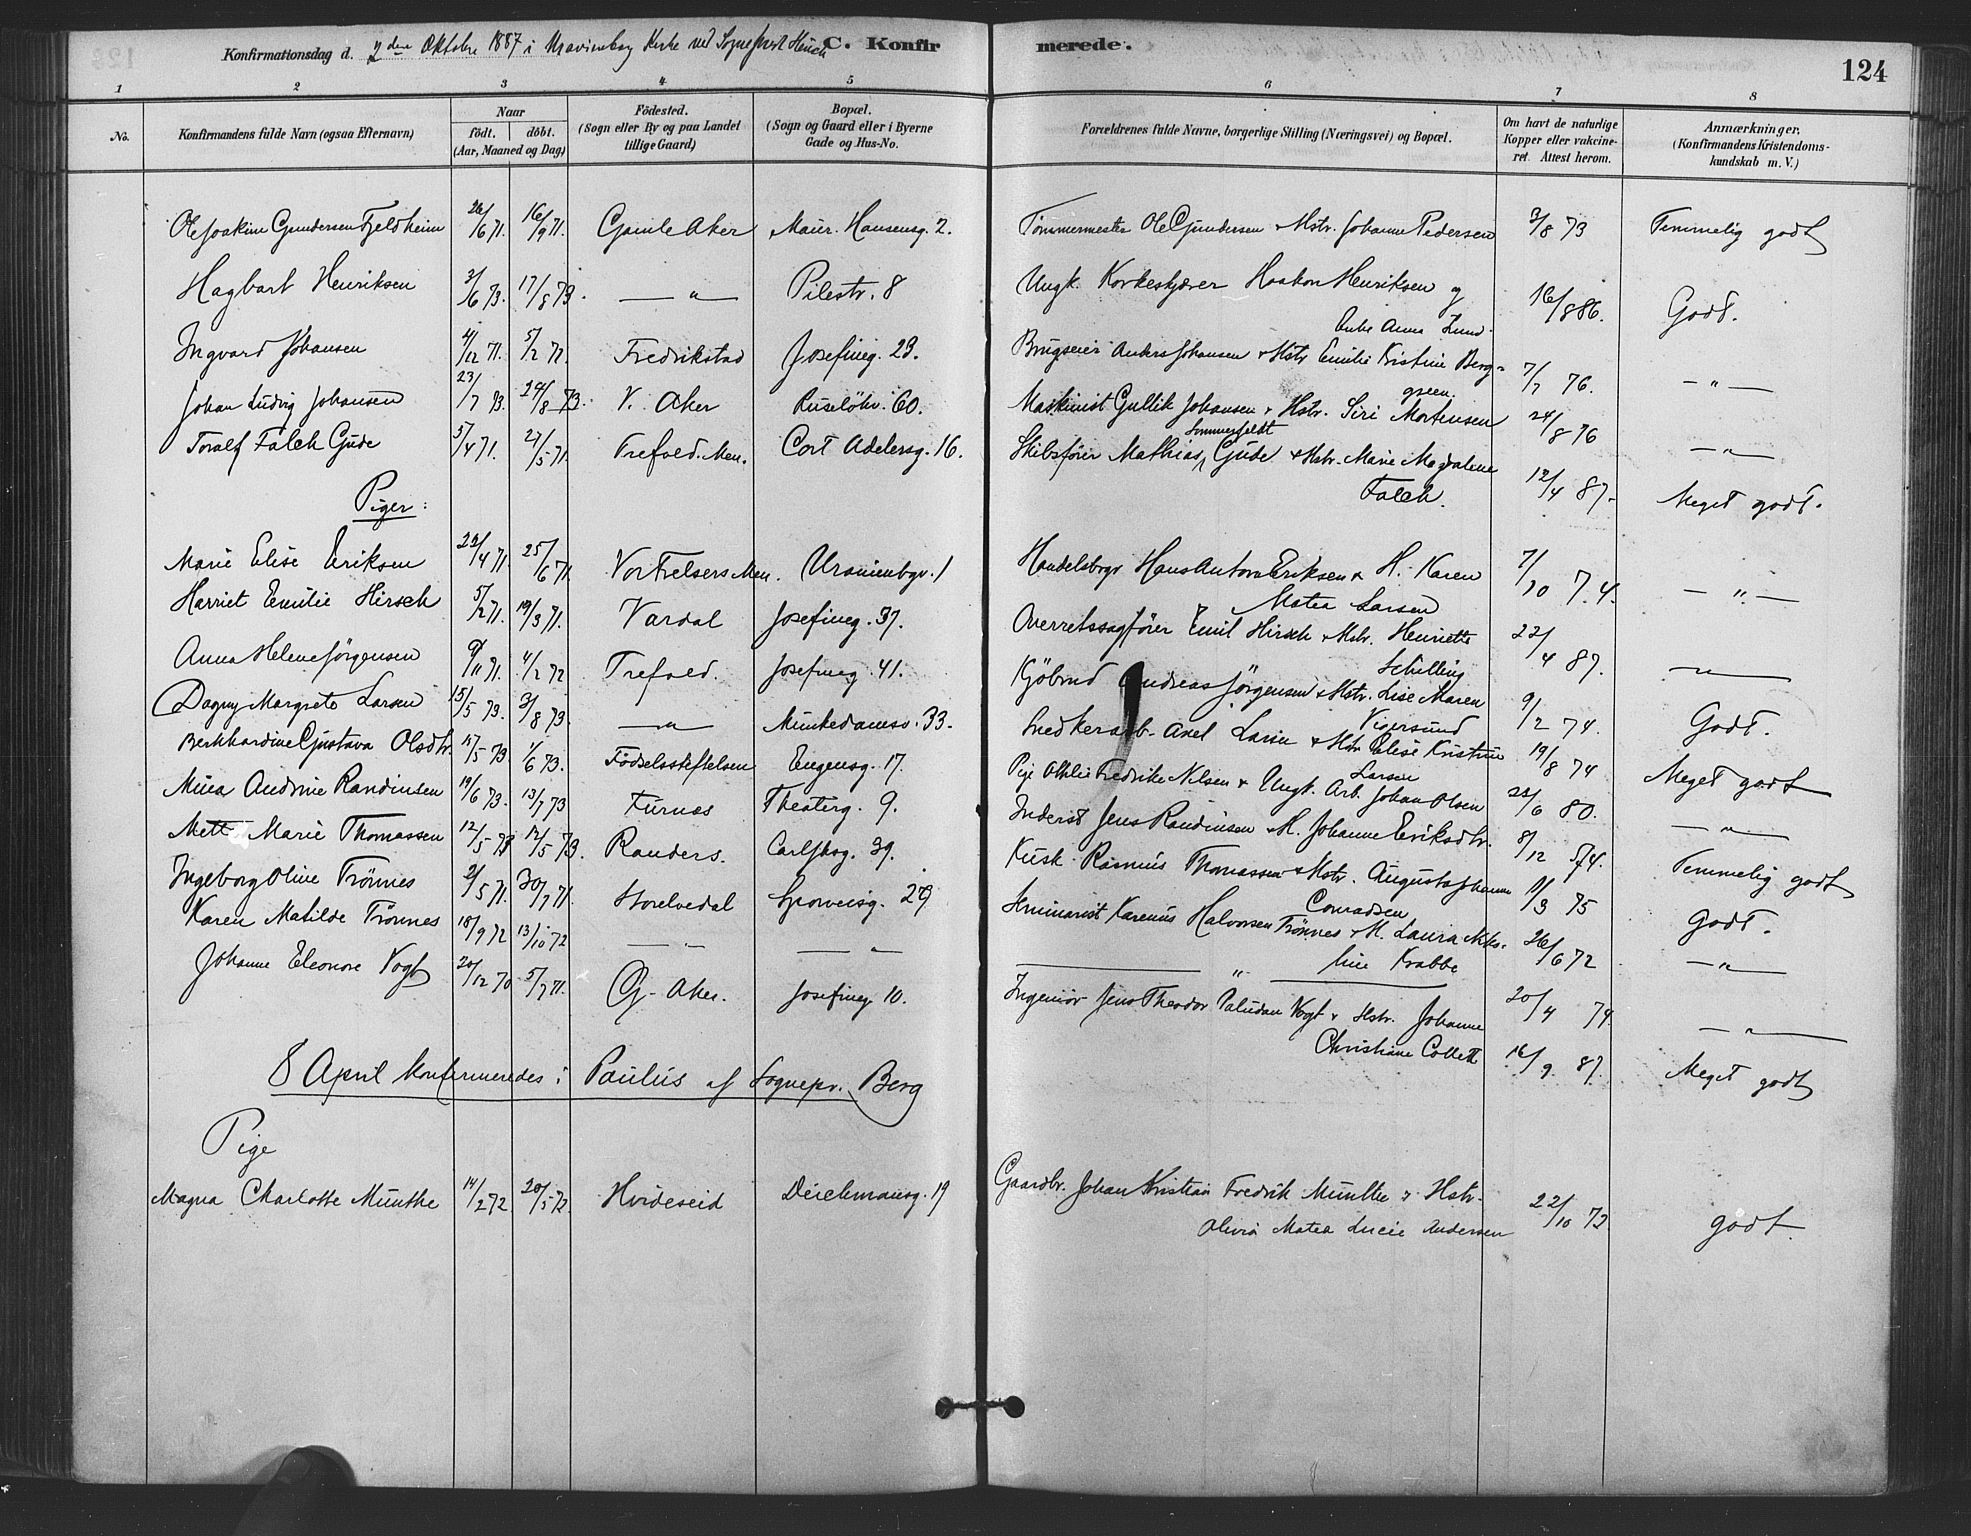 Konfirmationsdag d. 2den Oktobre 1887 i Uranienborg Kirke ved Sognepræst Heuch
C. Konfirmerede.
124
1 2 3 4 5 6 7 8
No.
Konfirmandens fulde Navn (ogsaa Efternavn)
Naar
födt. döbt.
(Aar, Maaned og Dag)
Födested.
(Sogn eller By og paa Landet tillige Gaard)
Bopæl.
(Sogn og Gaard eller i Byerne Gade og Hus-No.
Forældrenes fulde Navne, borgerlige Stilling (Næringsvei) og Bopæl.
Om havt de naturlige Kopper eller vakcineret. Attest herom.
Anmærkninger.
(Konfirmandens Kristendomskundskab m. V.)
Ole Joakim Gundersen Fjeldheim 26/6 71. 16/9 71. Gamle Aker Maur. Hansensg. 2. Tömmermester Ole Gundersen & Hstr. Johanne Pedersen 3/8 73 Temmelig godt
Hagbart Henriksen 3/6 73. 17/8 73. — " — Pilestr. 8 Ungk. Korkeskjærer Haakon Henriksen og Enke Anna Lund. 16/8 86. Godt.
Ingvard Johansen 4/12 71. 5/2 72. Fredrikstad Josefineg. 23. Brugseier Anders Johansen & Hstr Emilie Kristine Berggreen. 7/7 76. — " —
Johan Ludvig Johansen 23/7 73. 24/8 73. V. Aker Ruselökv. 60. Maskinist Gullik Johansen & Hstr. Siri Mortensen 24/8 76 — " —
Toralf Falch Gude 5/4 71. 27/5 71. Trefold. Men. Cort Adelersg. 16. Skibsförer Mathias Sommerfeldt Gude & Hstr. Marie Magdalene Falch. 12/4 87. Meget godt.
Piger:
Marie Elise Eriksen 22/4 71. 25/6 71. Vor Frelsers Men. Uranienbgv. 1 Handelsbgr Hans Anton Eriksen & H. Karen Matea Larsen 7/10 74. — " —
Harriet Emilie Hirsch 5/2 71. 19/3 71. Vardal Josefineg. 37. Overretssagförer Emil Hirsch & Hstr. Henriette Schilling 22/4 87. — " —
Anna Helene Jörgensen 9/11 71. 4/2 72 Trefold. Josefineg. 41. Kjöbmd Andreas Jörgensen & Hstr. Lise Maren Vigersund 9/2 74. Godt.
Dagny Margrete Larsen 15/5 73. 3/8 73. — " — Munkedamsv. 33. Snedkerarb. Axel Larsen & Hstr Elise Kristine Larsen 19/8 74 Meget godt
Berkhardine Gustava Olsdtr. 15/5 73 1/6 73. Födselsstiftelsen Eugensg. 17. Pige Othilie Fredrike Nilsen & Ungk. Arb. Johan Olsen 22/6 80. — " —
Mina Andrine Randinsen 19/6 73. 13/7 73 Furnæs Theaterg. 9. Inderst Jens Randinsen & H. Johanne Eriksdtr. 8/12 74. Temmelig godt
Mette Marie Thomassen 12/5 73 12/5 73. Randers. Carl Jhsg. 39. Kusk. Rasmus Thomassen & Hstr. Augusta Johanne Conradsen 11/3 75 Godt.
Ingeborg Oline Trönnes 2/5 71. 30/7 71. Storelvedal Sporveisg. 29 Seminarist Karenus Halvorsen Trönnes & H. Laura Nikoline Krabbe 26/6 72 — " —
Karen Matilde Trönnes 18/9 72 13/10 72 — " — — " — — " — 20/4 74. — " —
Johanne Eleonore Vogt 20/12 70 5/7 71. G. Aker. Josefineg. 10. Ingeniör Jens Theodor Paludan Vogt & Hstr. Johanne Christiane Collett 16/9 87. Meget godt
8 April konfirmeredes i Paulus af Sognepr. Berg
Pige
Magna Charlotte Munthe 14/2 72 20/5 72. Hvideseid Deichmansg. 19 Gaardbr. Johan Kristian Fredrik Munthe & Hstr. Olivia Matea Lucie Andersen 22/10 73 godt.